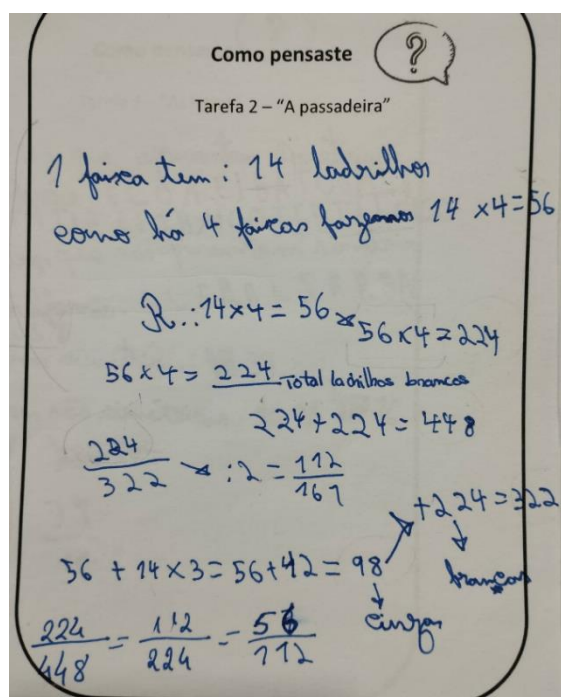 Como pensaste ?
Tarefa 2 – “A passadeira”
1 faixa tem : 14 ladrilhos
como há 4 faixas fazemos 14 × 4 = 56
R.: 14 × 4 = 56 56 × 4 = 224
56 × 4 = 224 Total ladrilhos brancos
224 + 224 = 448
224/322 : 2 = 112/161
+ 224 = 322
56 + 14 × 3 = 56 + 42 = 98 brancos
cinzas
224/448 = 112/224 = 56/112